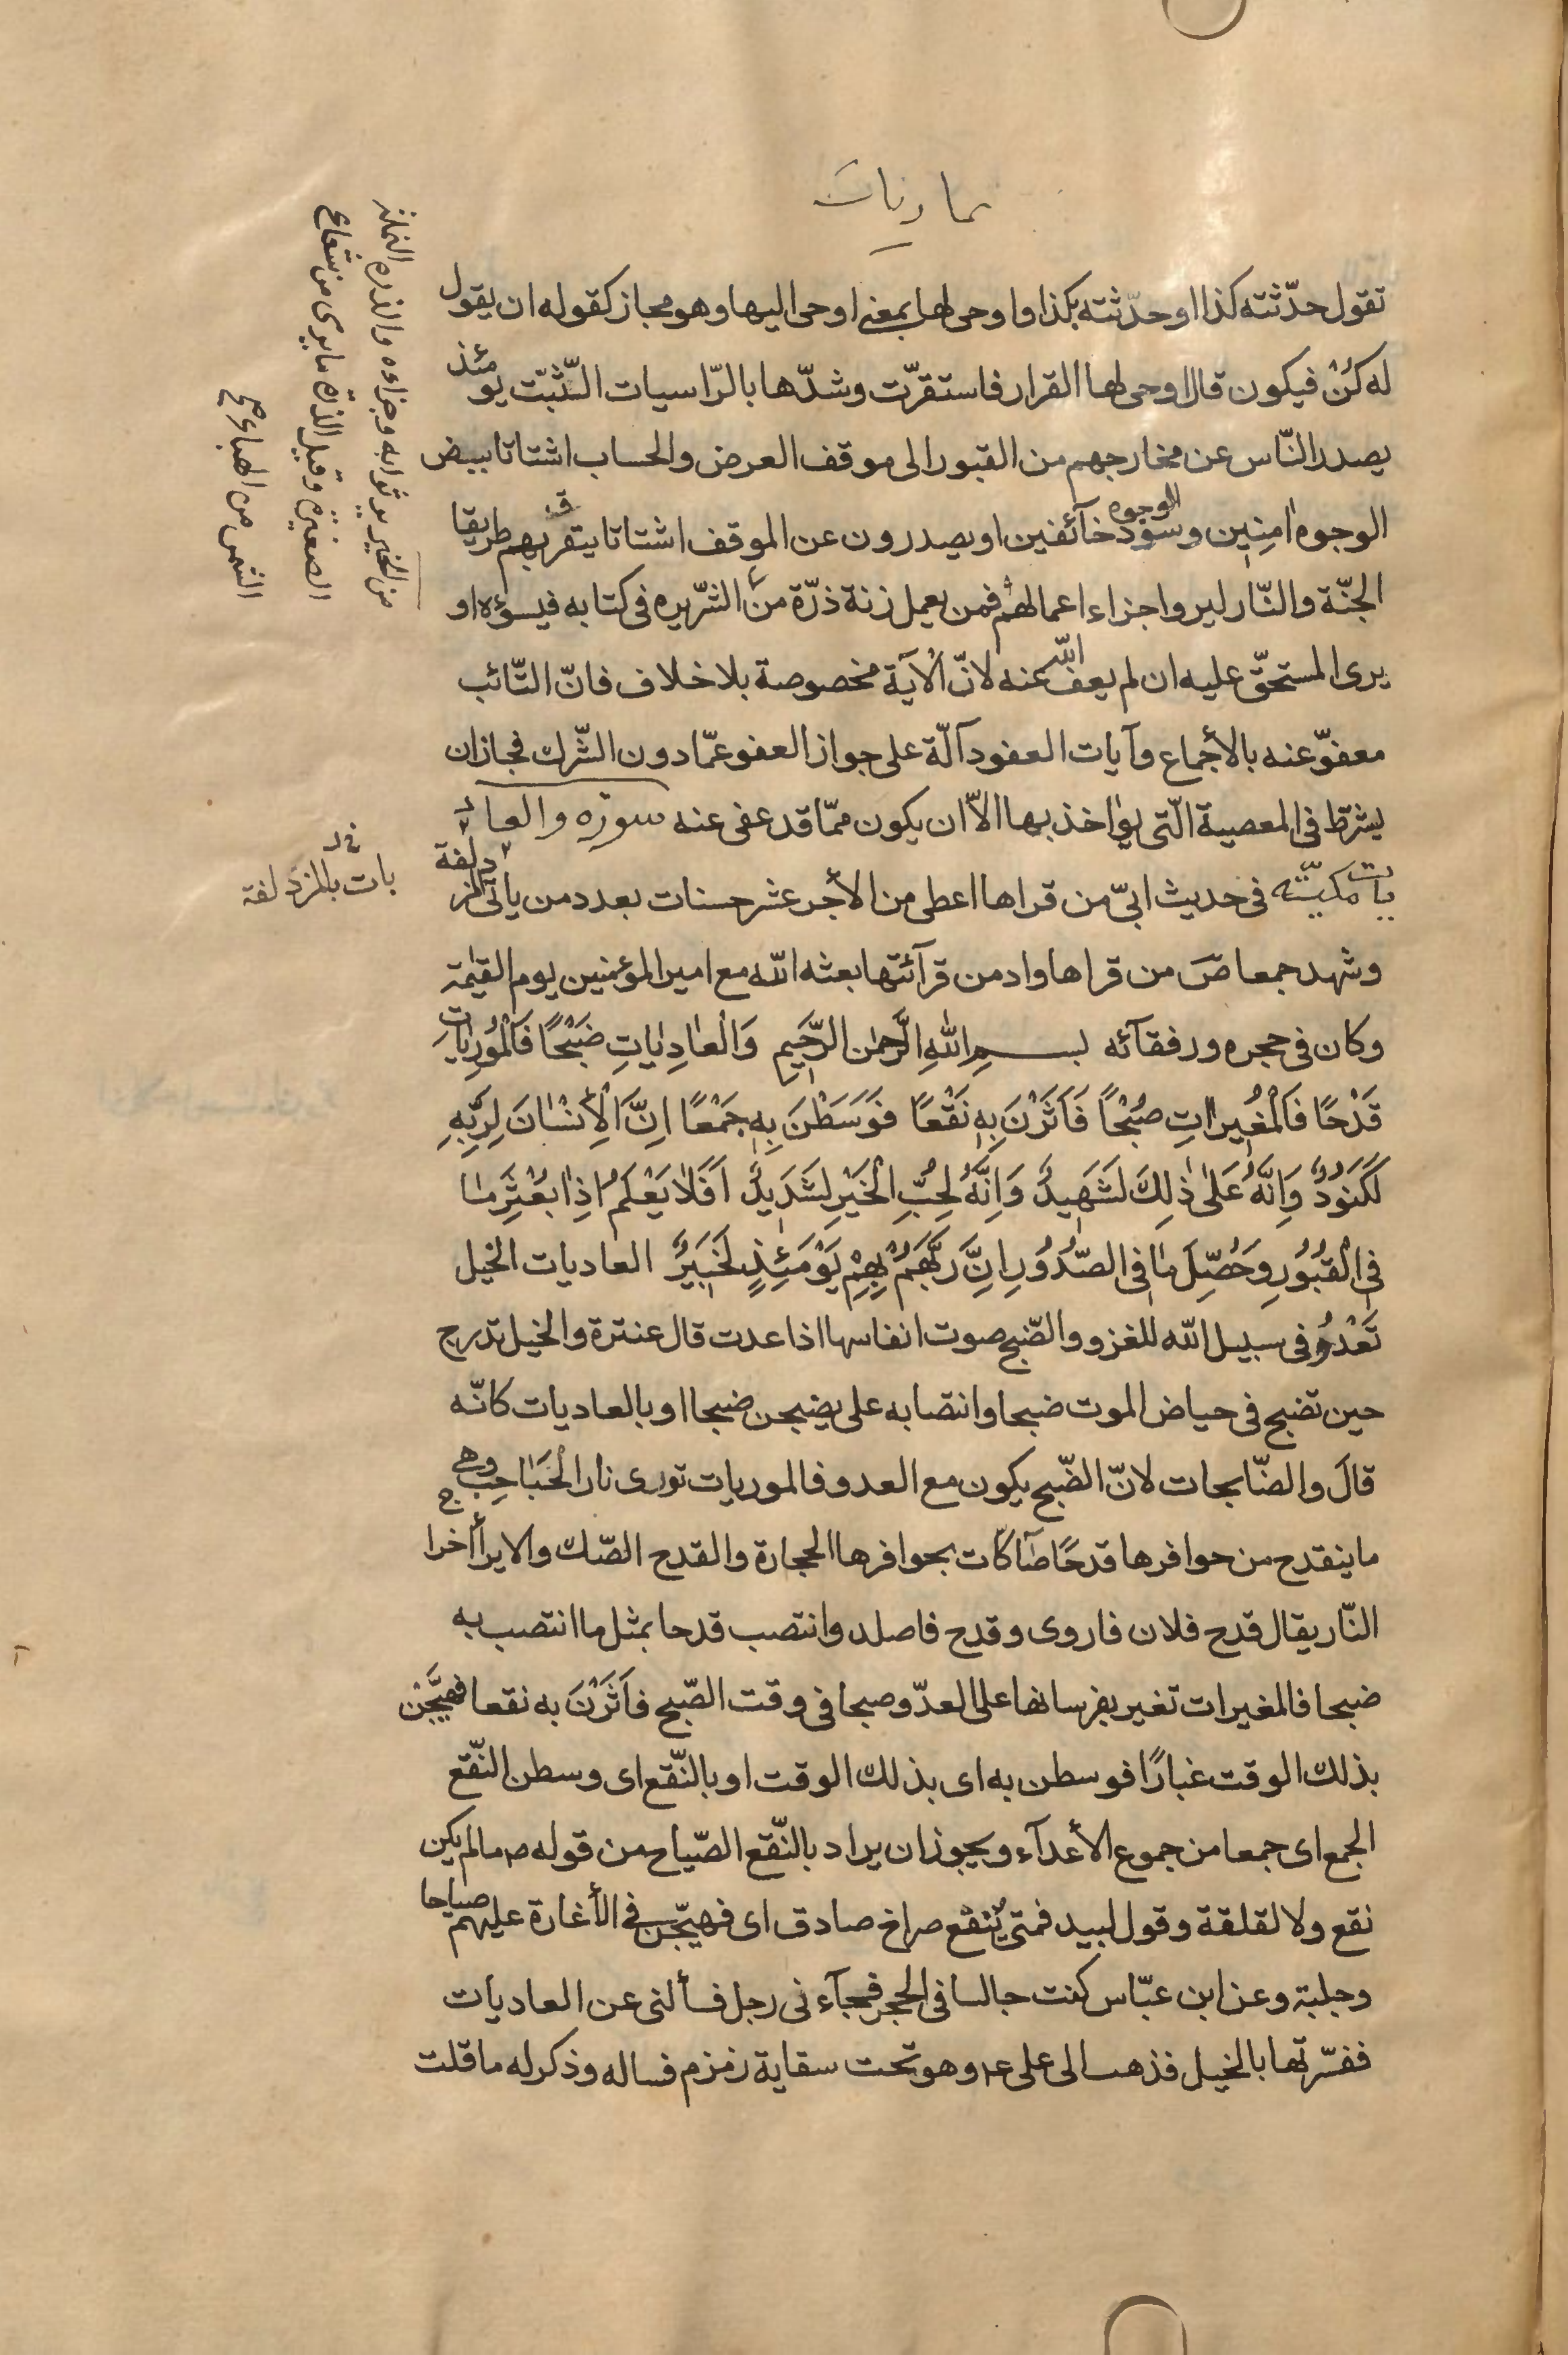 عاديات
تقول حدّثته كذا او حدّثته بكذا واوحى لها بمعنى اوحى اليها وهو مجاز كقوله ان يقول
له كُنْ فيكون قال اوحى لها القرار فاستقرّت وشدّها بالرّاسيات الثّبّت يومئذ
يصدر النّاس عن مخارجهم من القبور الى موقف العرض والحساب اشتاتا بيض
الوجوه امنين وسود الوجوه خآئفين او يصدرون عن الموقف اشتاتا يتفرّق بهم طريقا
الجنّة والنّار ليروا جزاء اعمالهم فمن يعمل زنة ذرّة من الشّرّ يره فى كتابه فيسؤه او
يرى المستحقّ عليه ان لم يعف الله عنه لانّ الآية مخصوصة بلا خلاف فانّ التّائب
معفوّ عنه بالأجماع وآيات العفو دآلّة على جواز العفو عمّا دون الشّرك فجاز ان
يشرط فى المعصية الّتى يؤاخذ بها الاّ ان يكون ممّا قد عفى عنه سورة والعاد
يات مكيّة فى حديث ابىّ من قراها اعطى من الأجر عشر حسنات بعدد من ياتى المزدلفة
وشهد جمعا ص من قراها وادمن قرآئتها بعثه الله مع امير المؤمنين يوم القيمة
وكان فى حجره ورفقآئه بسم الله الرَّحمن الرَّحِيمِ وَالْعادِياتِ ضَبْحًا فَالْمُورِياتِ
قَدْحًا فَالْمُغِيراتِ صُبْحًا فَاَثَرْنَ بِهِ نَقْعًا فَوَسَطْنَ بِهِ جَمْعًا اِنَّ الْاِنْسانَ لِرَبِّهِ
لَكَنُودٌ وَاِنَّهُ عَلى ذلِكَ لَشَهِيدٌ وَاِنَّهُ لِحُبِّ الْخَيْرِ لَشَدِيدٌ اَفَلا يَعْلَمُ اِذا بُعْثِرَ ما
فِى الْقُبُورِ وَحُصِّلَ ما فِى الصُّدُورِ اِنَّ رَبَّهُمْ بِهِمْ يَوْمَئِذٍ لَخَبِيرٌ العاديات الخيل
تَعْدُو فى سبيل الله للغزو والضّبح صوت انفاسها اذا عدت قال عنترة والخيل تدرج
حين تضبح فى حياض الموت ضبحا وانتصابه على يضبحن ضبحا او بالعاديات كانّه
قالَ والضّابحات لانّ الضّبح يكون مع العدو فالموريات تورى نار الْحُبَاحِب وهى
ما ينقدح من حوافرها قدحًا صآكّات بحوافرها الحجارة والقدح الصّك والايرآ اخراج
النّار يقال قدح فلان فاروى وقدح فاصلد وانتصب قدحا بمثل ما انتصب به
ضبحا فالمغيرات تغير بفرسانها على العدّو صبحا فى وقت الصّبح فاَثَرْنَ به نقعا فهيَّجْن
بذلك الوقت غبارًا فوسطن به اى بذلك الوقت او بالنّقع اى وسطن النّقع
الجمع اى جمعا من جموع الأعدآء ويجوز ان يراد بالنّقع الصّياح من قوله ص ما لم يكن
نقع ولا لقلقة وقول لبيد فمتى يُنقع صراخ صادق اى فهيّجن فى الأغارة عليهم صياحا
وجلبة وعن ابن عبّاس كنت جالسا فى الحجر فجآءنى رجل فسألنى عن العاديات
ففسّرتها بالخيل فذهب الى على ع وهو تحت سقاية زمزم فساله وذكر له ما قلت
من الخير ير ثوابه وجزاءه والذره النملة
الصغيرة وقيل الذرة ما يرى من شعاع
الشمس من الهباء صح
بات بالمزدلفة